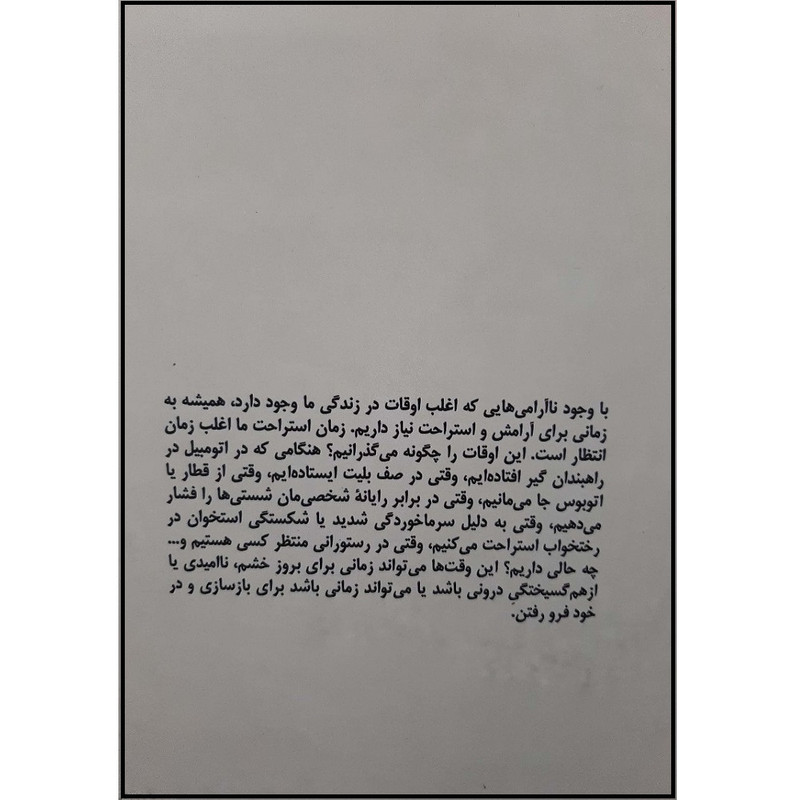 با وجود ناآرامی‌هایی که اغلب اوقات در زندگی ما وجود دارد، همیشه به
زمانی برای آرامش و استراحت نیاز داریم. زمان استراحت ما اغلب زمان
انتظار است. این اوقات را چگونه می‌گذرانیم؟ هنگامی که در اتومبیل در
راهبندان گیر افتاده‌ایم، وقتی در صف بلیت ایستاده‌ایم، وقتی از قطار یا
اتوبوس جا می‌مانیم، وقتی در برابر رایانهٔ شخصی‌مان شستی‌ها را فشار
می‌دهیم، وقتی به دلیل سرماخوردگی شدید یا شکستگی استخوان در
رختخواب استراحت می‌کنیم، وقتی در رستورانی منتظر کسی هستیم و...
چه حالی داریم؟ این وقت‌ها می‌تواند زمانی برای بروز خشم، ناامیدی یا
ازهم‌گسیختگیِ درونی باشد یا می‌تواند زمانی باشد برای بازسازی و در
خود فرو رفتن.